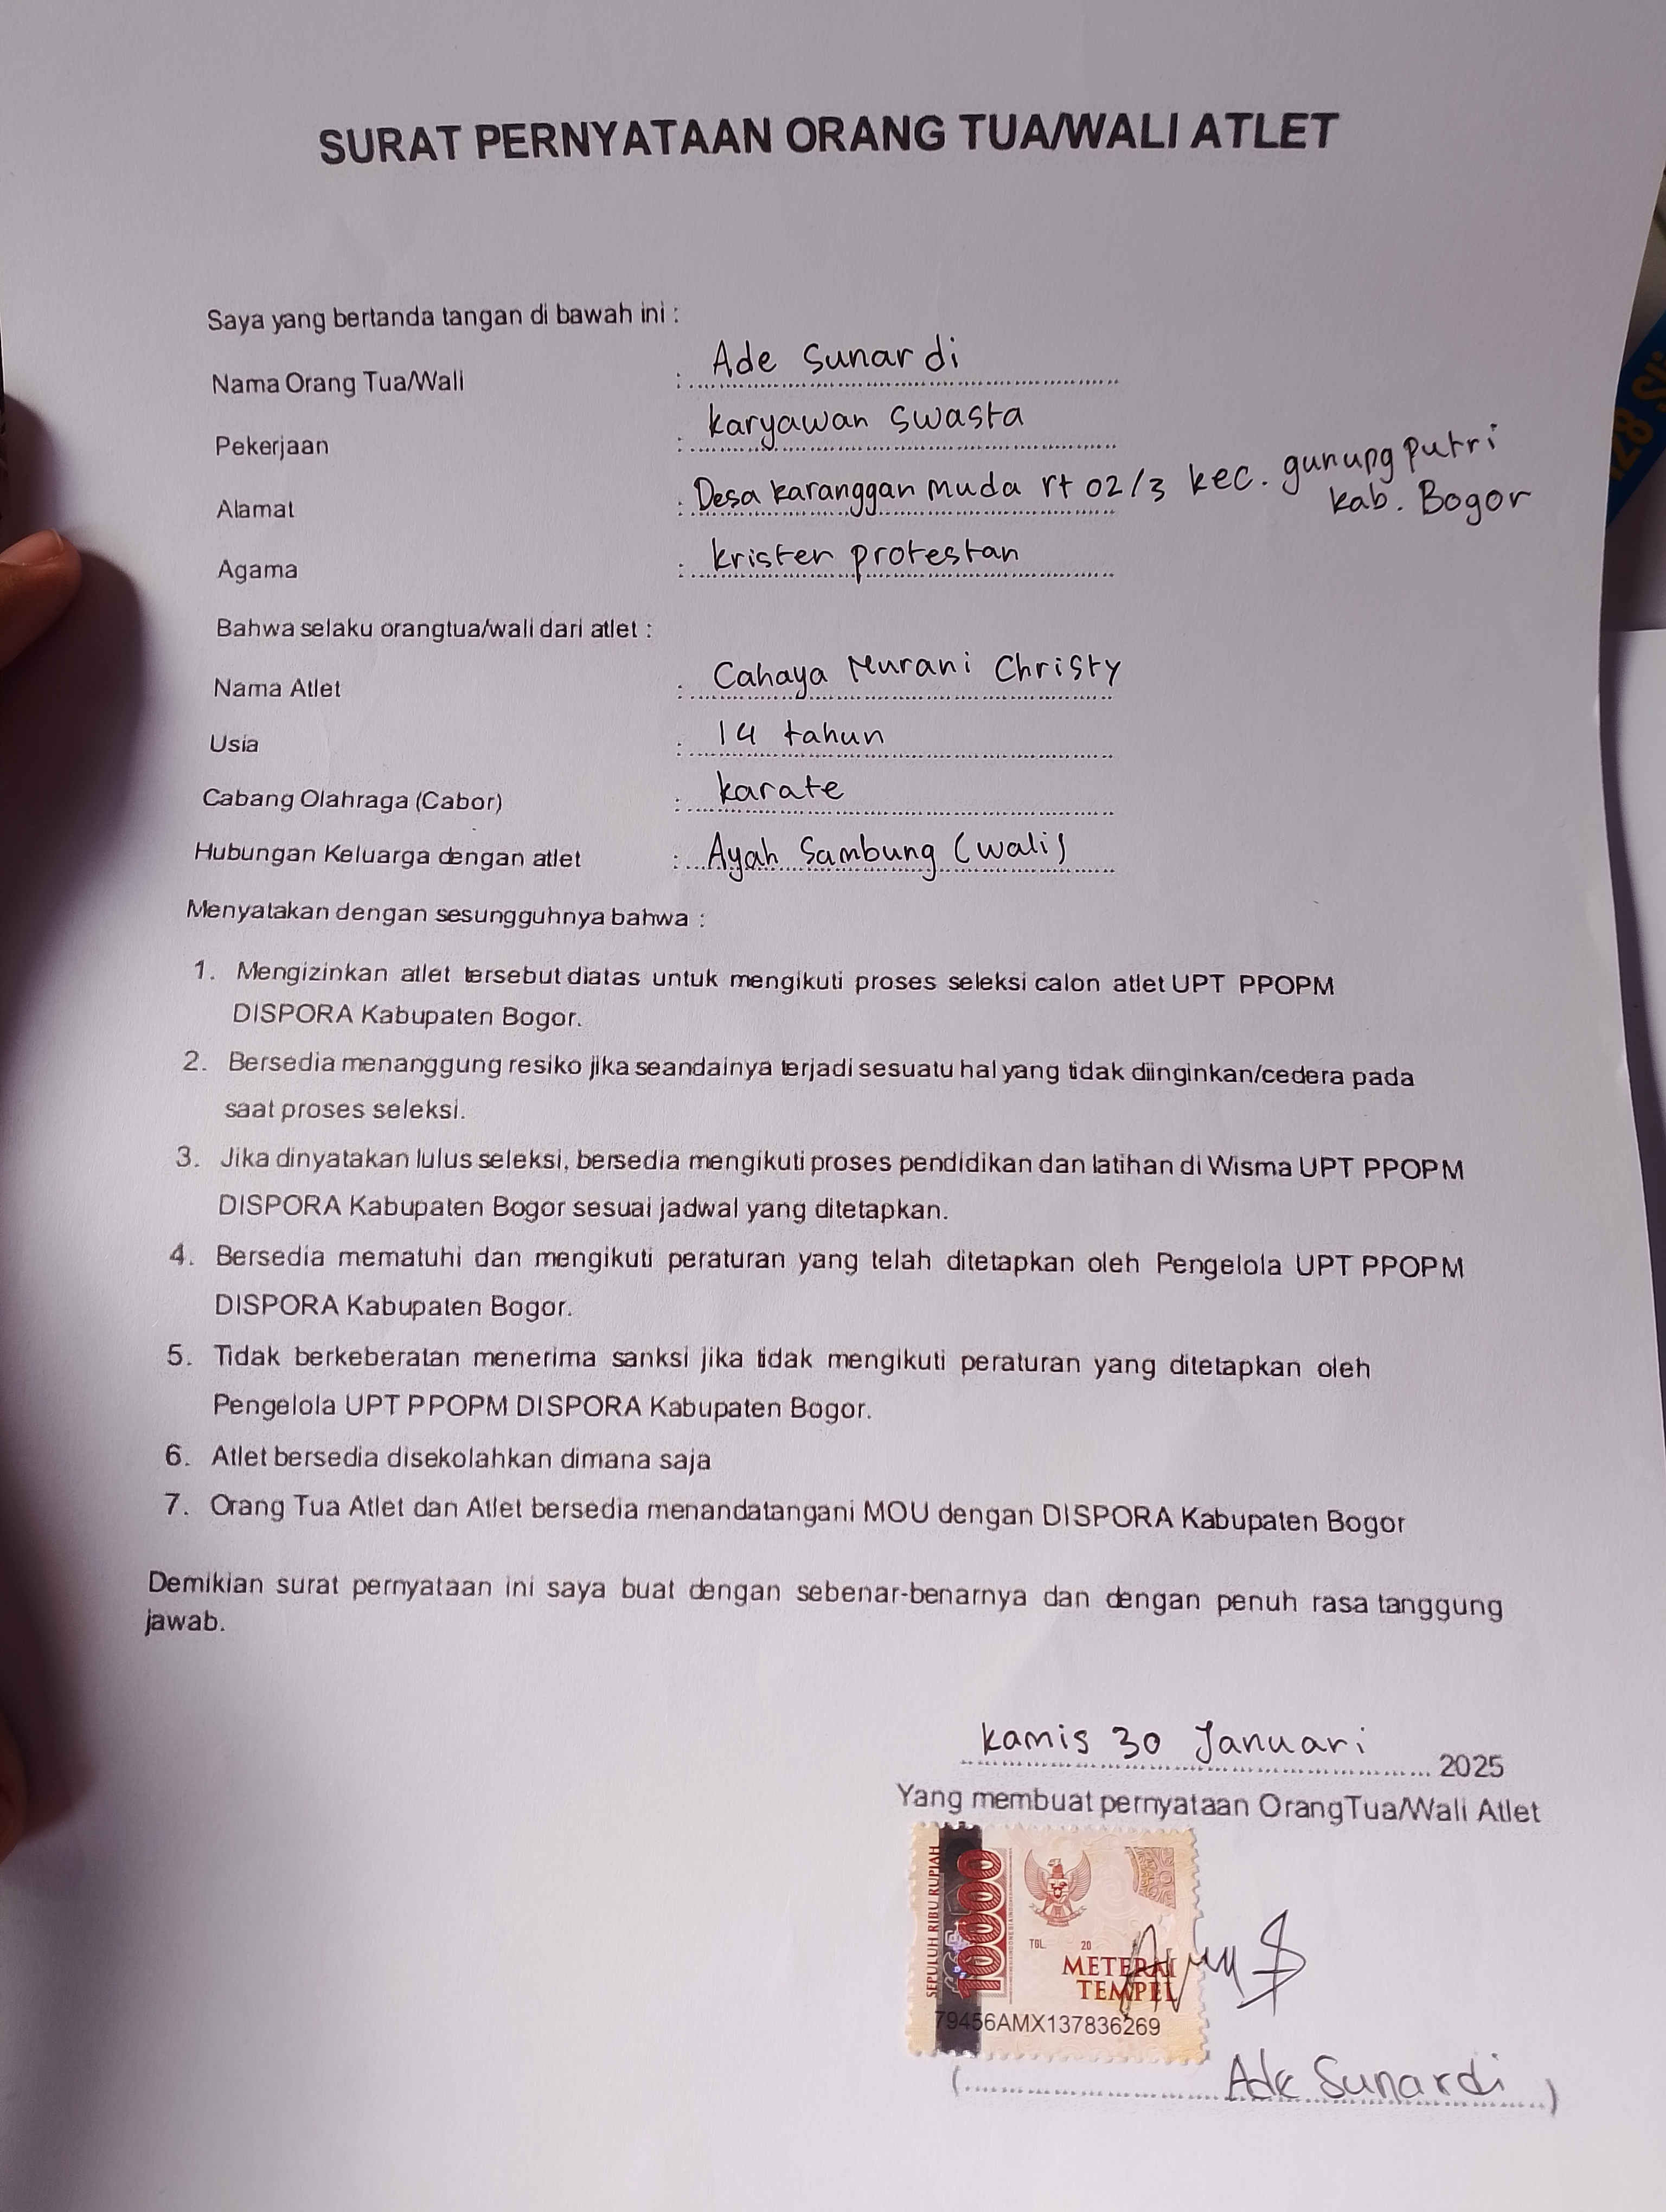 SURAT PERNYATAAN ORANG TUA/WALI ATLET
Saya yang bertanda tangan di bawah ini :
Nama Orang Tua/Wali : Ade Sunardi
Pekerjaan : karyawan swasta
Alamat : Desa karanggan muda rt 02/3 kec. gunung putri
kab. Bogor
Agama : kristen protestan
Bahwa selaku orangtua/wali dari atlet :
Nama Atlet : Cahaya Nurani Christy
Usia : 14 tahun
Cabang Olahraga (Cabor) : karate
Hubungan Keluarga dengan atlet : Ayah Sambung (wali)
Menyatakan dengan sesungguhnya bahwa :
1. Mengizinkan atlet tersebut diatas untuk mengikuti proses seleksi calon atlet UPT PPOPM
DISPORA Kabupaten Bogor.
2. Bersedia menanggung resiko jika seandainya terjadi sesuatu hal yang tidak diinginkan/cedera pada
saat proses seleksi.
3. Jika dinyatakan lulus seleksi, bersedia mengikuti proses pendidikan dan latihan di Wisma UPT PPOPM
DISPORA Kabupaten Bogor sesuai jadwal yang ditetapkan.
4. Bersedia mematuhi dan mengikuti peraturan yang telah ditetapkan oleh Pengelola UPT PPOPM
DISPORA Kabupaten Bogor.
5. Tidak berkeberatan menerima sanksi jika tidak mengikuti peraturan yang ditetapkan oleh
Pengelola UPT PPOPM DISPORA Kabupaten Bogor.
6. Atlet bersedia disekolahkan dimana saja
7. Orang Tua Atlet dan Atlet bersedia menandatangani MOU dengan DISPORA Kabupaten Bogor
Demikian surat pernyataan ini saya buat dengan sebenar-benarnya dan dengan penuh rasa tanggung
jawab.
kamis 30 Januari 2025
Yang membuat pernyataan OrangTua/Wali Atlet
SEPULUH RIBU RUPIAH
10000
TGL. 20
METERAI
TEMPEL
79456AMX137836269
(Ade Sunardi)